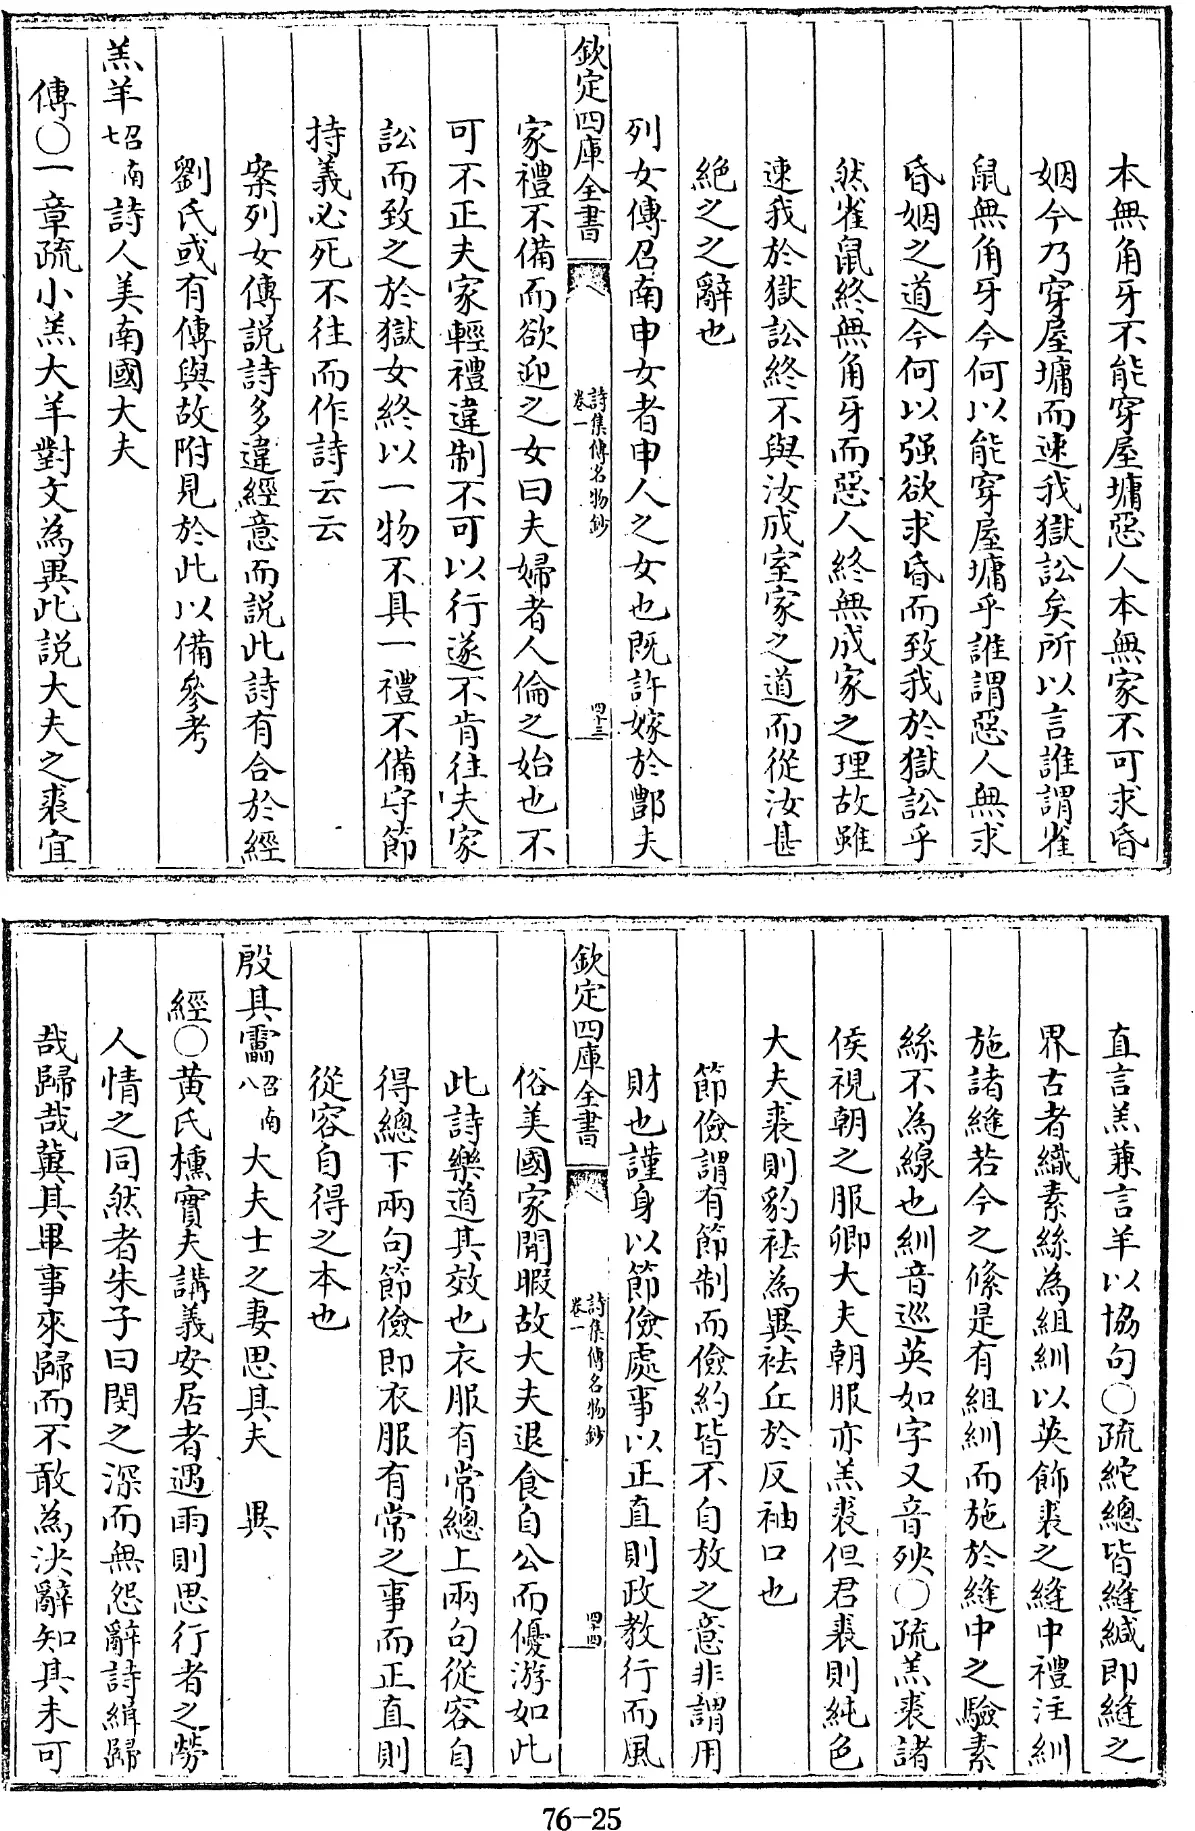 本無角牙不能穿屋墉惡人本無家不可求昏
姻今乃穿屋墉而速我獄訟矣所以言誰謂雀
鼠無角牙今何以能穿屋墉乎誰謂惡人無求
昏姻之道今何以强欲求昏而致我於獄訟乎
然雀鼠終無角牙而惡人終無成家之理故雖
速我於獄訟終不與汝成室家之道而從汝甚
絶之之辭也
列女傳召南申女者申人之女也既許嫁於酆夫
欽定四庫全書
詩集傳名物鈔
卷一
四十三
家禮不備而欲迎之女曰夫婦者人倫之始也不
可不正夫家輕禮違制不可以行遂不肯往夫家
訟而致之於獄女終以一物不具一禮不備守節
持義必死不往而作詩云云
案列女傳説詩多違經意而説此詩有合於經
劉氏或有傳與故附見於此以備參考
羔羊召南七詩人美南國大夫
傳○一章疏小羔大羊對文為異此説大夫之裘宜
直言羔兼言羊以協句○疏紽總皆縫緎即縫之
界古者織素絲為組紃以英飾裘之縫中禮注紃
施諸縫若今之絛是有組紃而施於縫中之驗素
絲不為線也紃音巡英如字又音殃○疏羔裘諸
侯視朝之服卿大夫朝服亦羔裘但君裘則純色
大夫裘則豹袪為異袪丘於反袖口也
節儉謂有節制而儉約皆不自放之意非謂用
財也謹身以節儉處事以正直則政教行而風
欽定四庫全書
詩集傳名物鈔
卷一
四十四
俗美國家閒暇故大夫退食自公而優游如此
此詩樂道其效也衣服有常總上兩句從容自
得總下兩句節儉即衣服有常之事而正直則
從容自得之本也
殷其靁召南八大夫士之妻思其夫 異
經○黄氏櫄實夫講義安居者遇雨則思行者之勞
人情之同然者朱子曰閔之深而無怨辭詩緝歸
哉歸哉冀其畢事來歸而不敢為決辭知其未可
76-25